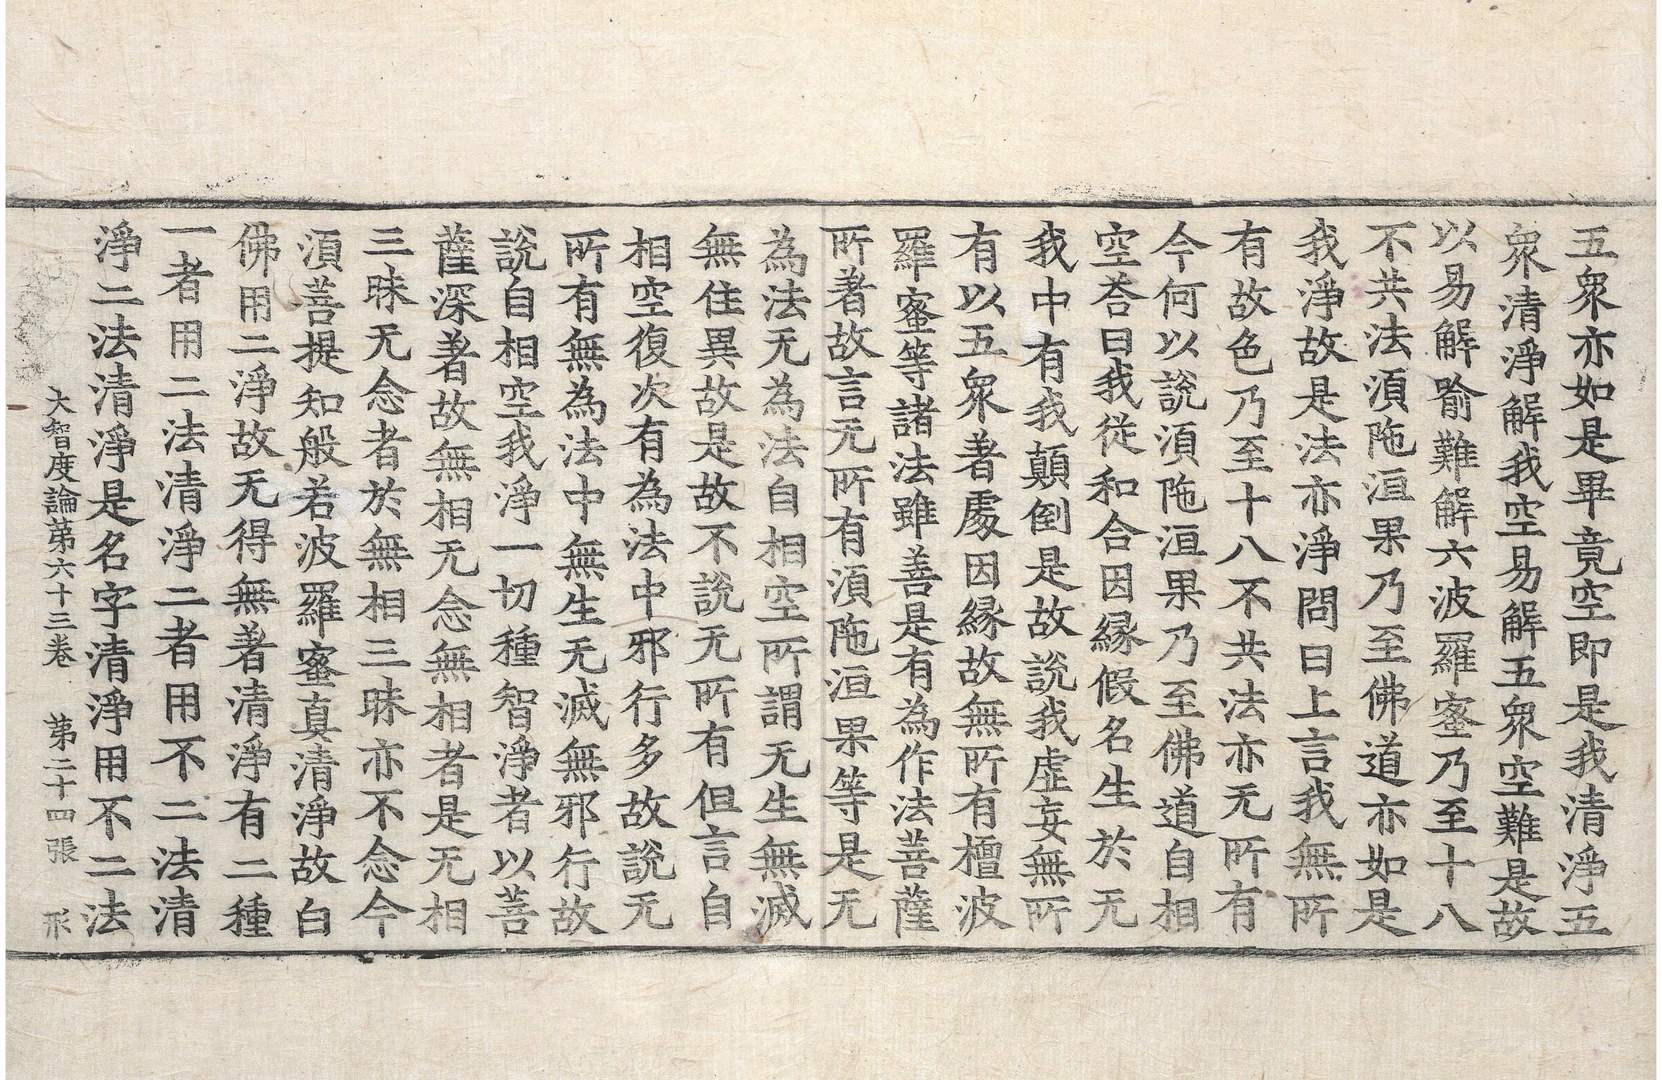 五衆亦如是畢竟空即是我清淨五
衆清淨解我空易解五衆空難是故
以易解喻難解六波羅蜜乃至十八
不共法湏陁洹果乃至佛道亦如是
我淨故是法亦淨問曰上言我無所
有故色乃至十八不共法亦无所有
今何以說湏陁洹果乃至佛道自相
空荅曰我從和合因緣假名生於无
我中有我顛倒是故說我虛妄無所
有以五衆著處因緣故無所有檀波
羅蜜等諸法雖善是有為作法菩薩
所著故言无所有湏陁洹果等是无
為法无為法自相空所謂无生無滅
無住異故是故不說无所有但言自
相空復次有為法中邪行多故說无
所有無為法中無生无滅無邪行故
說自相空我淨一切種智淨者以菩
薩深著故無相无念無相者是无相
三昧无念者於無相三昧亦不念今
湏菩提知般若波羅蜜真清淨故白
佛用二淨故无得無著清淨有二種
一者用二法清淨二者用不二法清
淨二法清淨是名字清淨用不二法
大智度論第六十三卷 第二十四張 形